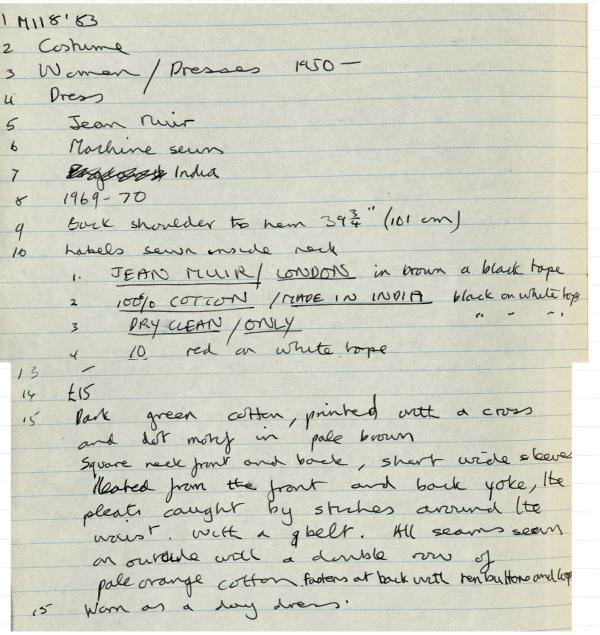 1 M118'83
2 Costume
3 Women / Dresses 1950 —
4 Dress
5 Jean Muir
6 Machine sewn
7 India
8 1969-70
9 Back shoulder to hem 39 3/4" (101 cm)
10 Labels sewn inside neck
1. JEAN MUIR / LONDON in brown on black tape
2 100% COTTON / MADE IN INDIA black on white tape
3 DRY CLEAN / ONLY " " "
4 10 red on white tape
13 -
14 £15
15 Dark green cotton, printed with a cross
and dot motif in pale brown
Square neck front and back, short wide sleeves
Pleated from the front and back yoke, the
pleats caught by stiches around the
waist. With a belt. All seams sewn
on outside with a double row of
pale orange cotton. fastens at back with ten buttons and loops
15 Worn as a day dress.